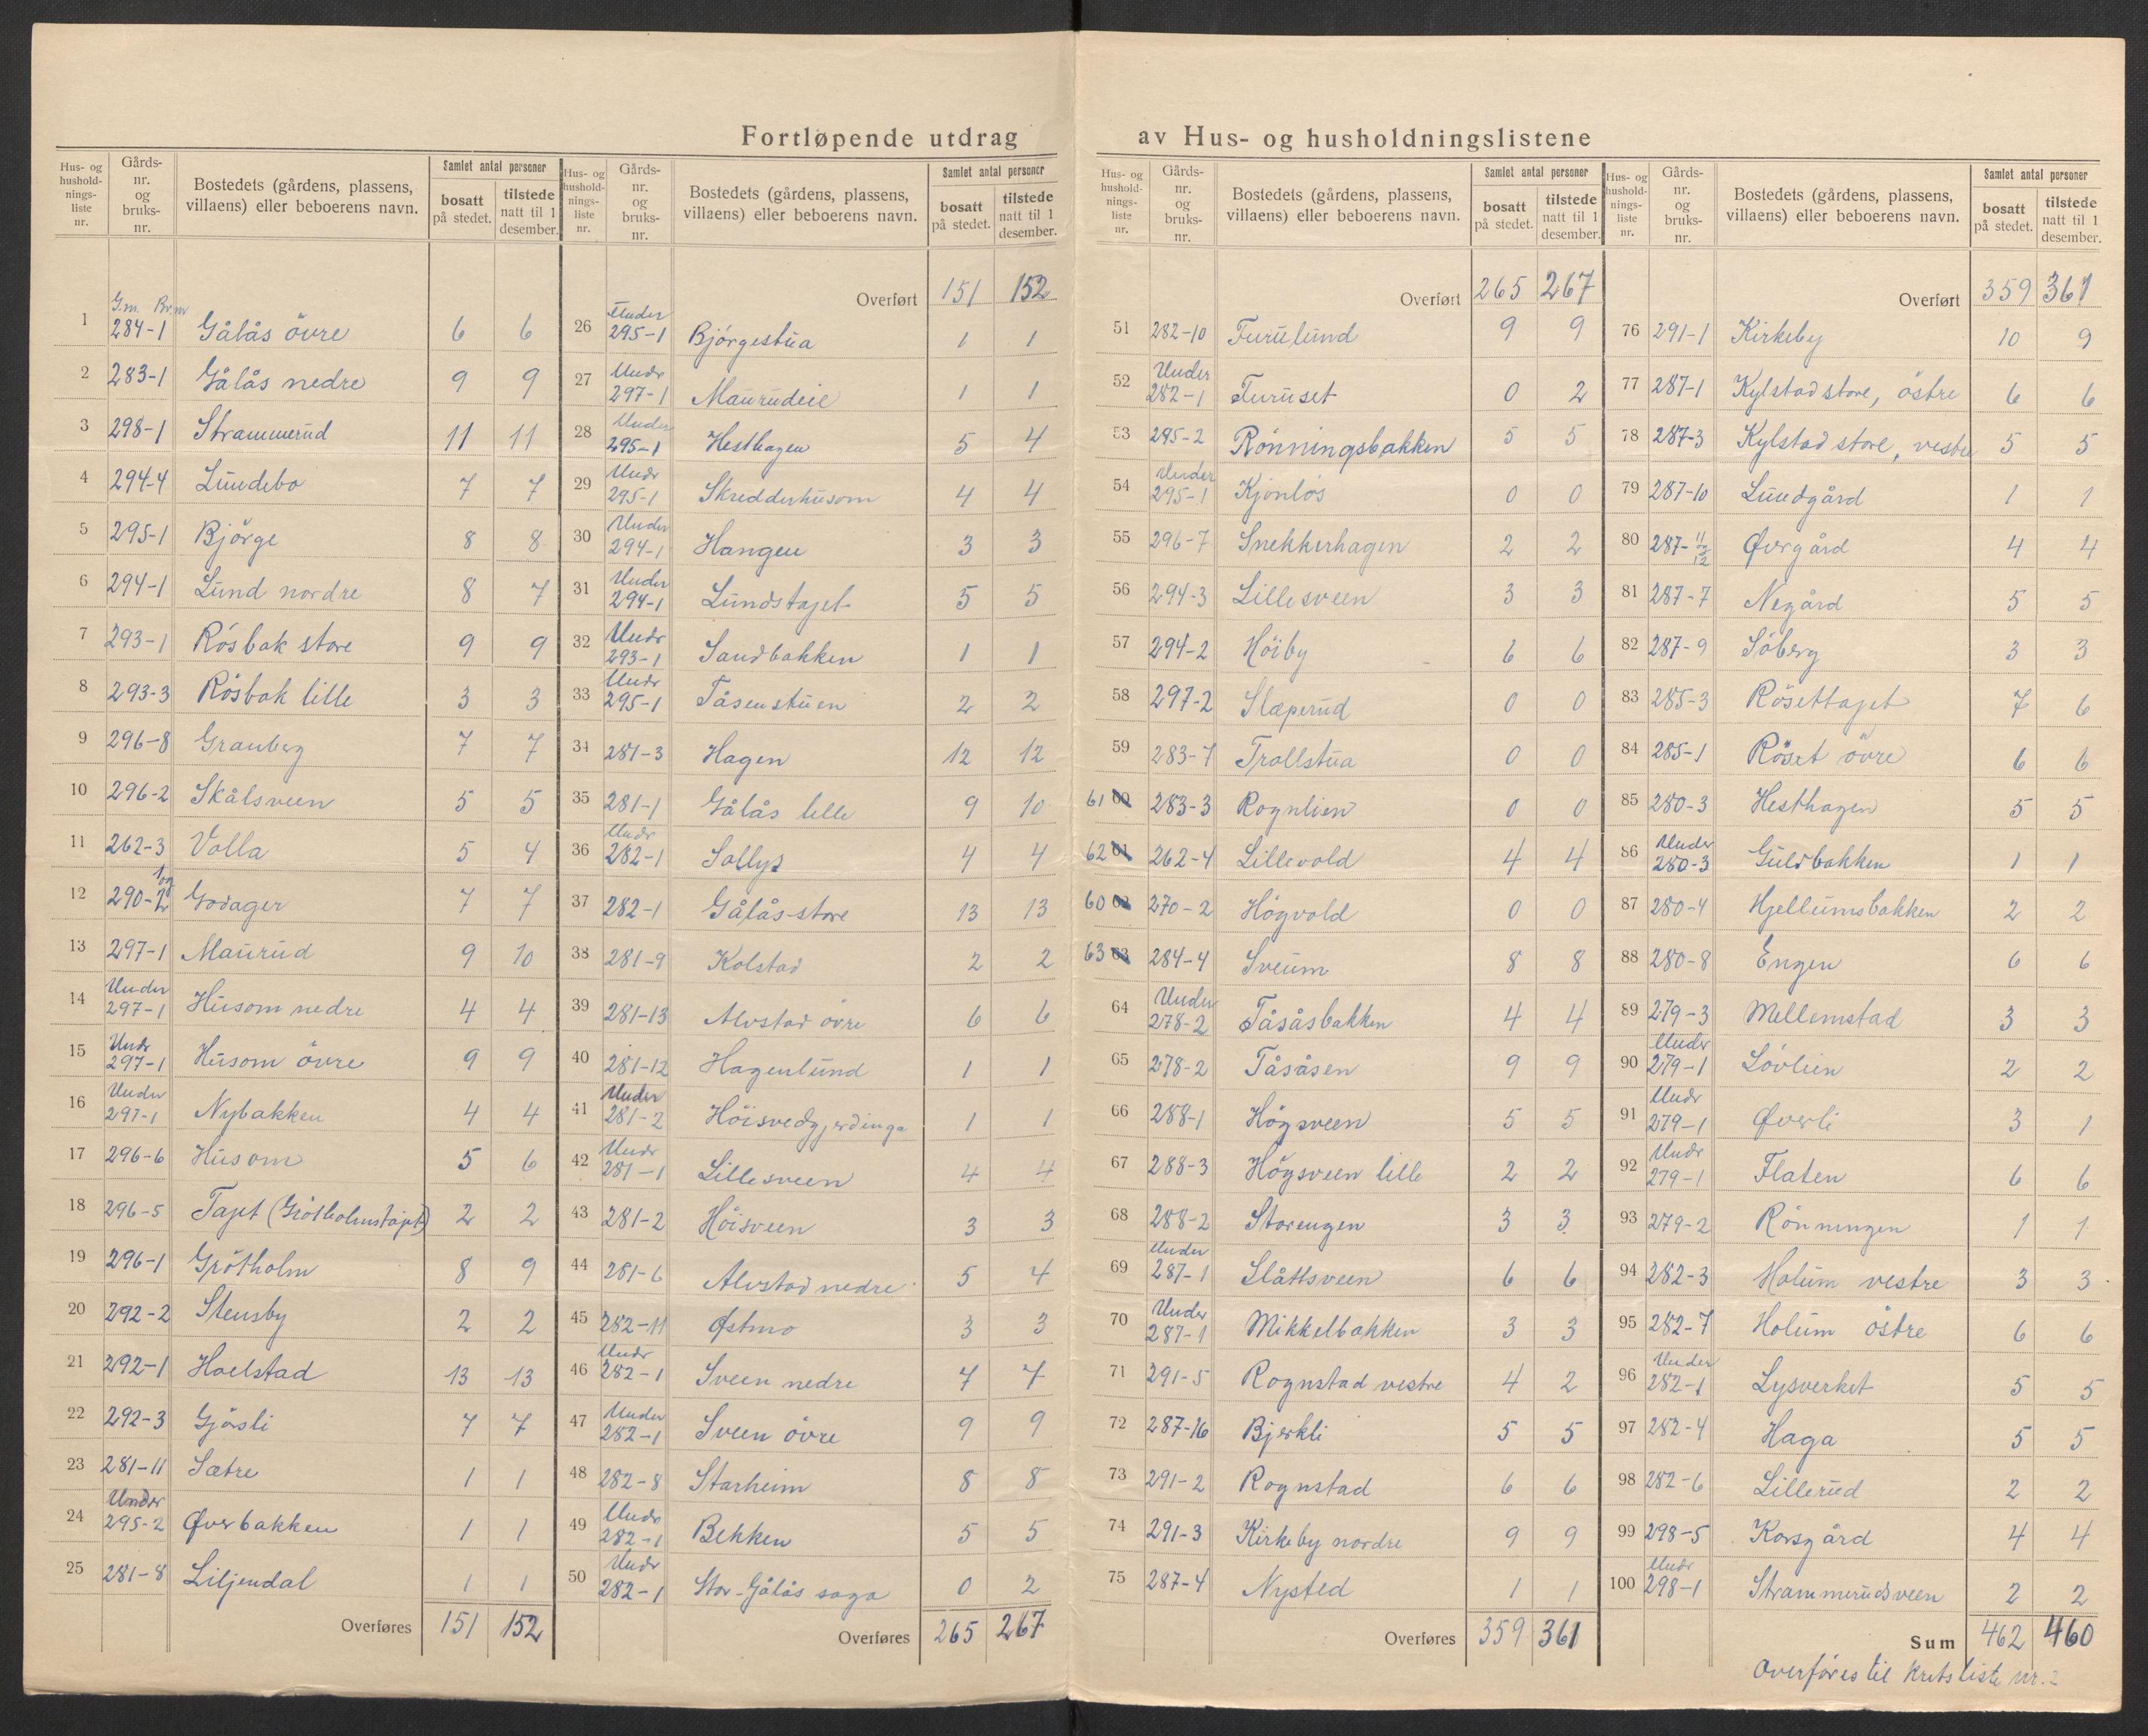 Fortløpende utdrag av Hus- og husholdningslistene
Hus- og hushold-nings-liste nr. Gårds-nr. og bruks-nr. Bostedets (gårdens, plassens, villaens) eller beboerens navn. Samlet antal personer bosatt på stedet. tilstede natt til 1 desember.
G.nr. Br.nr
1 284-1 Gålås övre 6 6
2 283-1 Gålås nedre 9 9
3 298-1 Strammerud 11 11
4 294-4 Lundebo 7 7
5 295-1 Björge 8 8
6 294-1 Lund nordre 8 7
7 293-1 Rösbak store 9 9
8 293-3 Rösbak lille 3 3
9 296-8 Granberg 7 7
10 296-2 Skålsveen 5 5
11 262-3 Volla 5 4
12 290-1 og 2 Godager 7 7
13 297-1 Maurud 9 10
14 Under 297-1 Husom nedre 4 4
15 Undr 297-1 Husom övre 9 9
16 Under 297-1 Nybakken 4 4
17 296-6 Husom 5 6
18 296-5 Tajet (Grötholmstajet) 2 2
19 296-1 Grötholm 8 9
20 292-2 Stensby 2 2
21 292-1 Hoelstad 13 13
22 292-3 Gjösli 7 7
23 281-11 Sætre 1 1
24 Under 295-2 Øverbakken 1 1
25 281-8 Liljendal 1 1
Overføres 151 152
Hus- og hushold-nings-liste nr. Gårds-nr. og bruks-nr. Bostedets (gårdens, plassens, villaens) eller beboerens navn. Samlet antal personer bosatt på stedet. tilstede natt til 1 desember.
Overført 151 152
26 Under 295-1 Bjørgestua 1 1
27 Undr 297-1 Maurudeie 1 1
28 Under 295-1 Hesthagen 5 4
29 Undr 295-1 Skredderhusom 4 4
30 Under 294-1 Hangen 3 3
31 Under 294-1 Lundstajet 5 5
32 Undr 293-1 Sandbakken 1 1
33 Undr 295-1 Tåsenstuen 2 2
34 281-3 Hagen 12 12
35 281-1 Gålås lille 9 10
36 Undr 282-1 Sollys 4 4
37 282-1 Gålås-store 13 13
38 281-9 Kolstad 2 2
39 281-13 Alvstad övre 6 6
40 281-12 Hagenlund 1 1
41 Under 281-2 Höisvedgjerdinga 1 1
42 Undr 281-1 Lillesveen 4 4
43 281-2 Höisveen 3 3
44 281-6 Alvstad nedre 5 4
45 282-11 Østmo 3 3
46 Undr 282-1 Sveen nedre 7 7
47 Under 282-1 Sveen övre 9 9
48 282-8 Starheim 8 8
49 Undr 282-1 Bekken 5 5
50 Undr 282-1 Stor-Gålås saga 0 2
Overføres 265 267
Hus- og hushold-nings-liste nr. Gårds-nr. og bruks-nr. Bostedets (gårdens, plassens, villaens) eller beboerens navn. Samlet antal personer bosatt på stedet. tilstede natt til 1 desember.
Overført 265 267
51 282-10 Furulund 9 9
52 Under 282-1 Furuset 0 2
53 295-2 Rönningsbakken 5 5
54 Under 295-1 Kjönlös 0 0
55 296-7 Snekkerhagen 2 2
56 294-3 Lillesveen 3 3
57 294-2 Höiby 6 6
58 297-2 Slæperud 0 0
59 283-7 Trollstua 0 0
61 60 283-3 Rognlien 0 0
62 61 262-4 Lillevold 4 4
60 62 270-2 Högvold 0 0
63 63 284-4 Sveum 8 8
64 Under 278-2 Tåsåsbakken 4 4
65 278-2 Tåsåsen 9 9
66 288-1 Högsveen 5 5
67 288-3 Högsveen lille 2 2
68 288-2 Storengen 3 3
69 Under 287-1 Slåttsveen 6 6
70 Under 287-1 Mikkelbakken 3 3
71 291-5 Rognstad vestre 4 2
72 287-16 Bjerkli 5 5
73 291-2 Rognstad 6 6
74 291-3 Kirkeby nordre 9 9
75 287-4 Nysted 1 1
Overføres 359 361
Hus- og hushold-nings-liste nr. Gårds-nr. og bruks-nr. Bostedets (gårdens, plassens, villaens) eller beboerens navn. Samlet antal personer bosatt på stedet. tilstede natt til 1 desember.
Overført 359 361
76 291-1 Kirkeby 10 9
77 287-1 Kylstad store, östre 6 6
78 287-3 Kylstad store, vestre 5 5
79 287-10 Lundgård 1 1
80 287-11/12 Øvrgård 4 4
81 287-7 Negård 5 5
82 287-9 Söberg 3 3
83 285-3 Rösettajet 7 6
84 285-1 Röset övre 6 6
85 280-3 Hesthagen 5 5
86 Under 280-3 Guldbakken 1 1
87 280-4 Hjellumsbakken 2 2
88 280-8 Engen 6 6
89 279-3 Mellemstad 3 3
90 Undr 279-1 Lövlien 2 2
91 Undr 279-1 Øverli 3 1
92 Undr 279-1 Flaten 6 6
93 279-2 Rönningen 1 1
94 282-3 Holum vestre 3 3
95 282-7 Holum östre 6 6
96 Under 282-1 Lysverket 5 5
97 282-4 Haga 5 5
98 282-6 Lillerud 2 2
99 298-5 Korsgård 4 4
100 Undr 298-1 Strammerudsveen 2 2
Sum 462 460
Overföres til kretsliste nr. 2